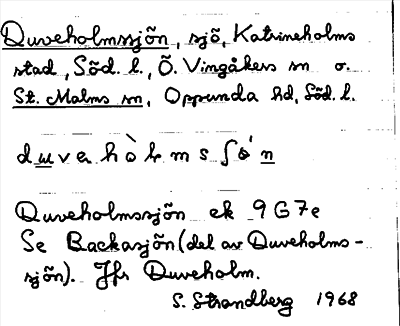 Duveholmssjön, sjö, Katrineholms
stad, Söd. l., Ö. Vingåkers sn o.
St. Malms sn, Oppunda hd, Söd. l.
duvehòlmsʃǿn
Duveholmssjön ek 9G7e
Se Backasjön (del av Duveholms-
sjön). Jfr Duveholm.
S. Strandberg 1968